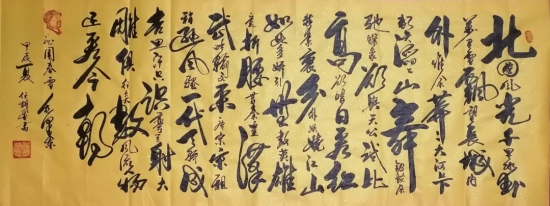 北国风光千里冰封
万里雪飘望长城内
外惟余莽大河上下
滔山舞银蛇原
驰蜡象欲与天公试比
高须晴日看红
装素裹分外妖娆江山
如此多娇引无数英雄
竞折腰惜秦皇汉
武略输文采唐宗宋祖
稍逊风骚一代天骄成
吉思汗只识弯弓射大
雕俱往矣数风流人物
还看今朝
沁园春雪毛泽东
甲辰夏 任书